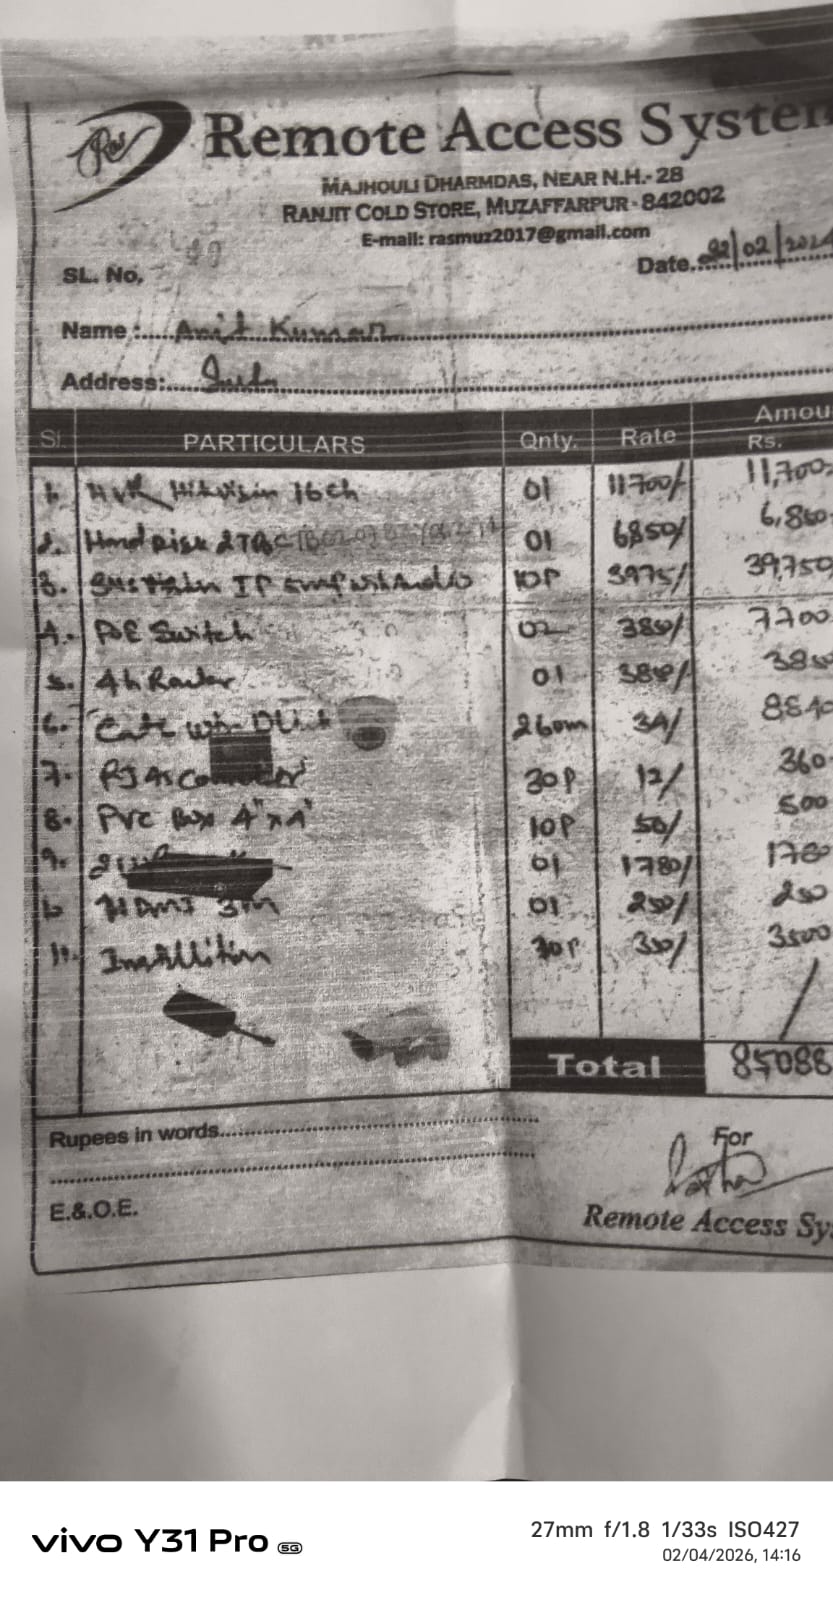 Ras
Remote Access System
MAJHOULI DHARMDAS, NEAR N.H.- 28
RANJIT COLD STORE, MUZAFFARPUR - 842002
E-mail: rasmuz2017@gmail.com
Date. 22/02/2024
SL. No.
Name : Anit Kumar
Address:
Sl. PARTICULARS Qnty. Rate Amou
Rs.
1. NVR Hikvision 16ch 01 11700/- 11,700
2. Hard Disk 2TB 01 6850/ 6,850
3. IP with Audio 10P 3975/ 39,750
4. POE Switch 02 7700
5. 01
6. Cat6 260m 34/ 8840
7. RJ45 30P 12/ 360
8. PVC Box 4"x4" 10P 50/ 500
9. 01 1780/ 1780
10 HDMI 3m 01 250/ 250
11. Installition 350/ 3500
Total 85088
Rupees in words
For
E.&.O.E.
Remote Access Sy
vivo Y31 Pro 5G
27mm f/1.8 1/33s ISO427
02/04/2026, 14:16